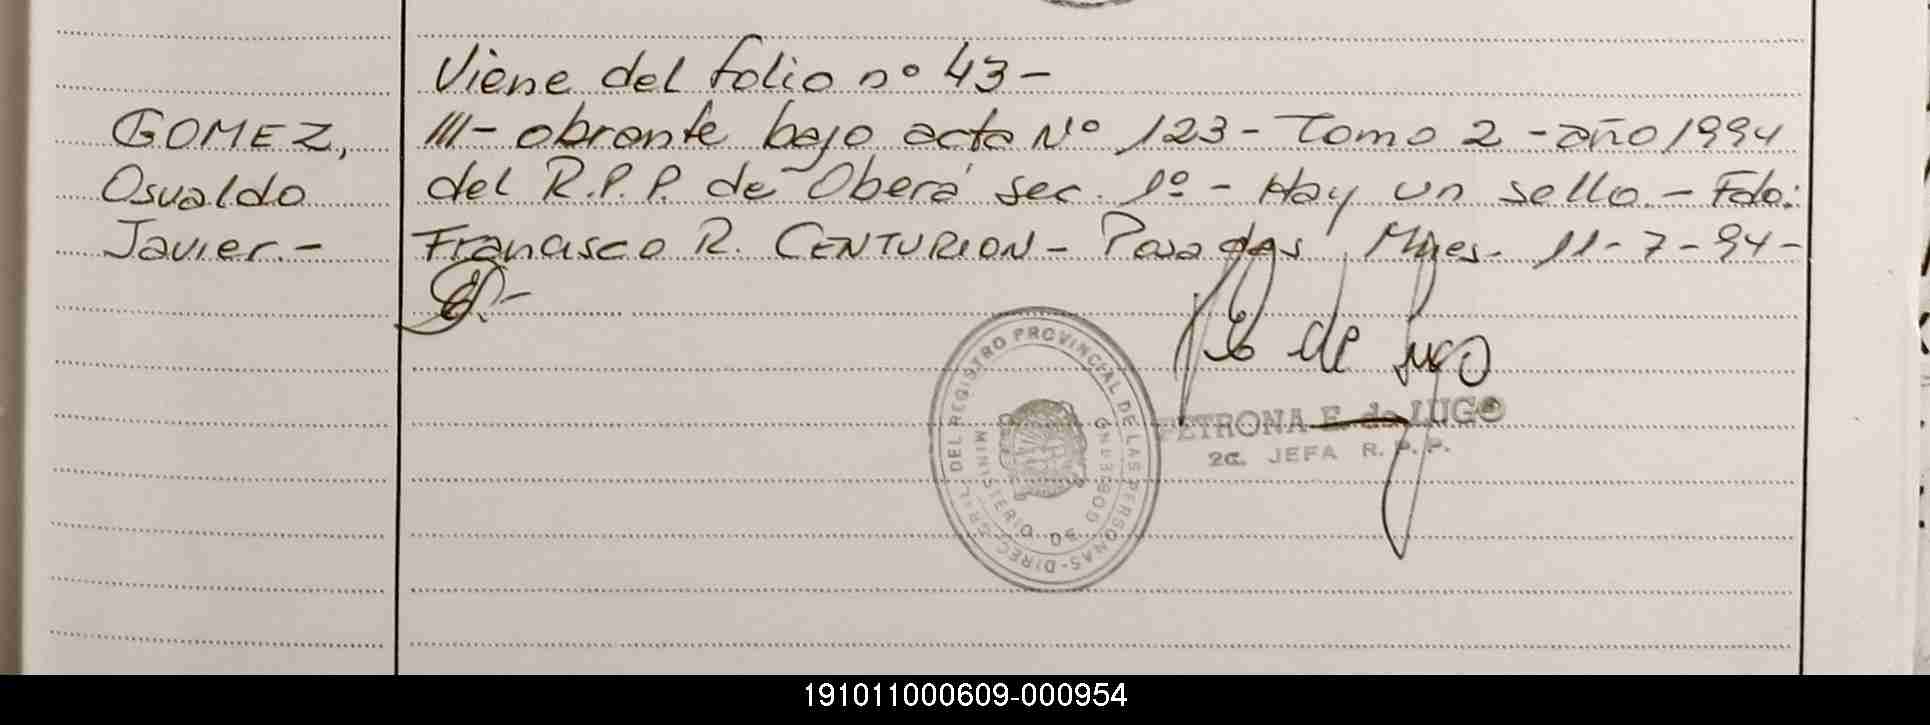 Viene del folio nº 43-
GOMEZ, III- obrante bajo acta Nº 123- Tomo 2 - año 1994
Osvaldo del R.P.P. de Oberá sec. 1º - Hay un sello.- Fdo:
Javier.- Francisco R. CENTURION - Posadas, Mnes. 11-7-94-
de Lugo
PETRONA E. de LUGO
2a. JEFA R.P.P.
DIREC. GRAL. DEL REGISTRO PROVINCIAL DE LAS PERSONAS-
MINISTERIO DE GOBIERNO
191011000609-000954